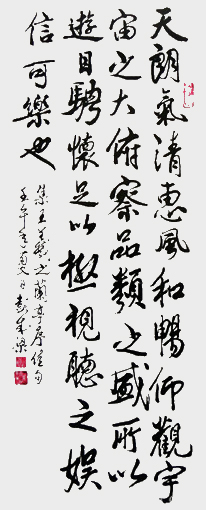 天朗氣清惠風和暢仰觀宇
宙之大俯察品類之盛所以
遊目騁懷足以極視聽之娛
信可樂也
集王羲之蘭亭序佳句